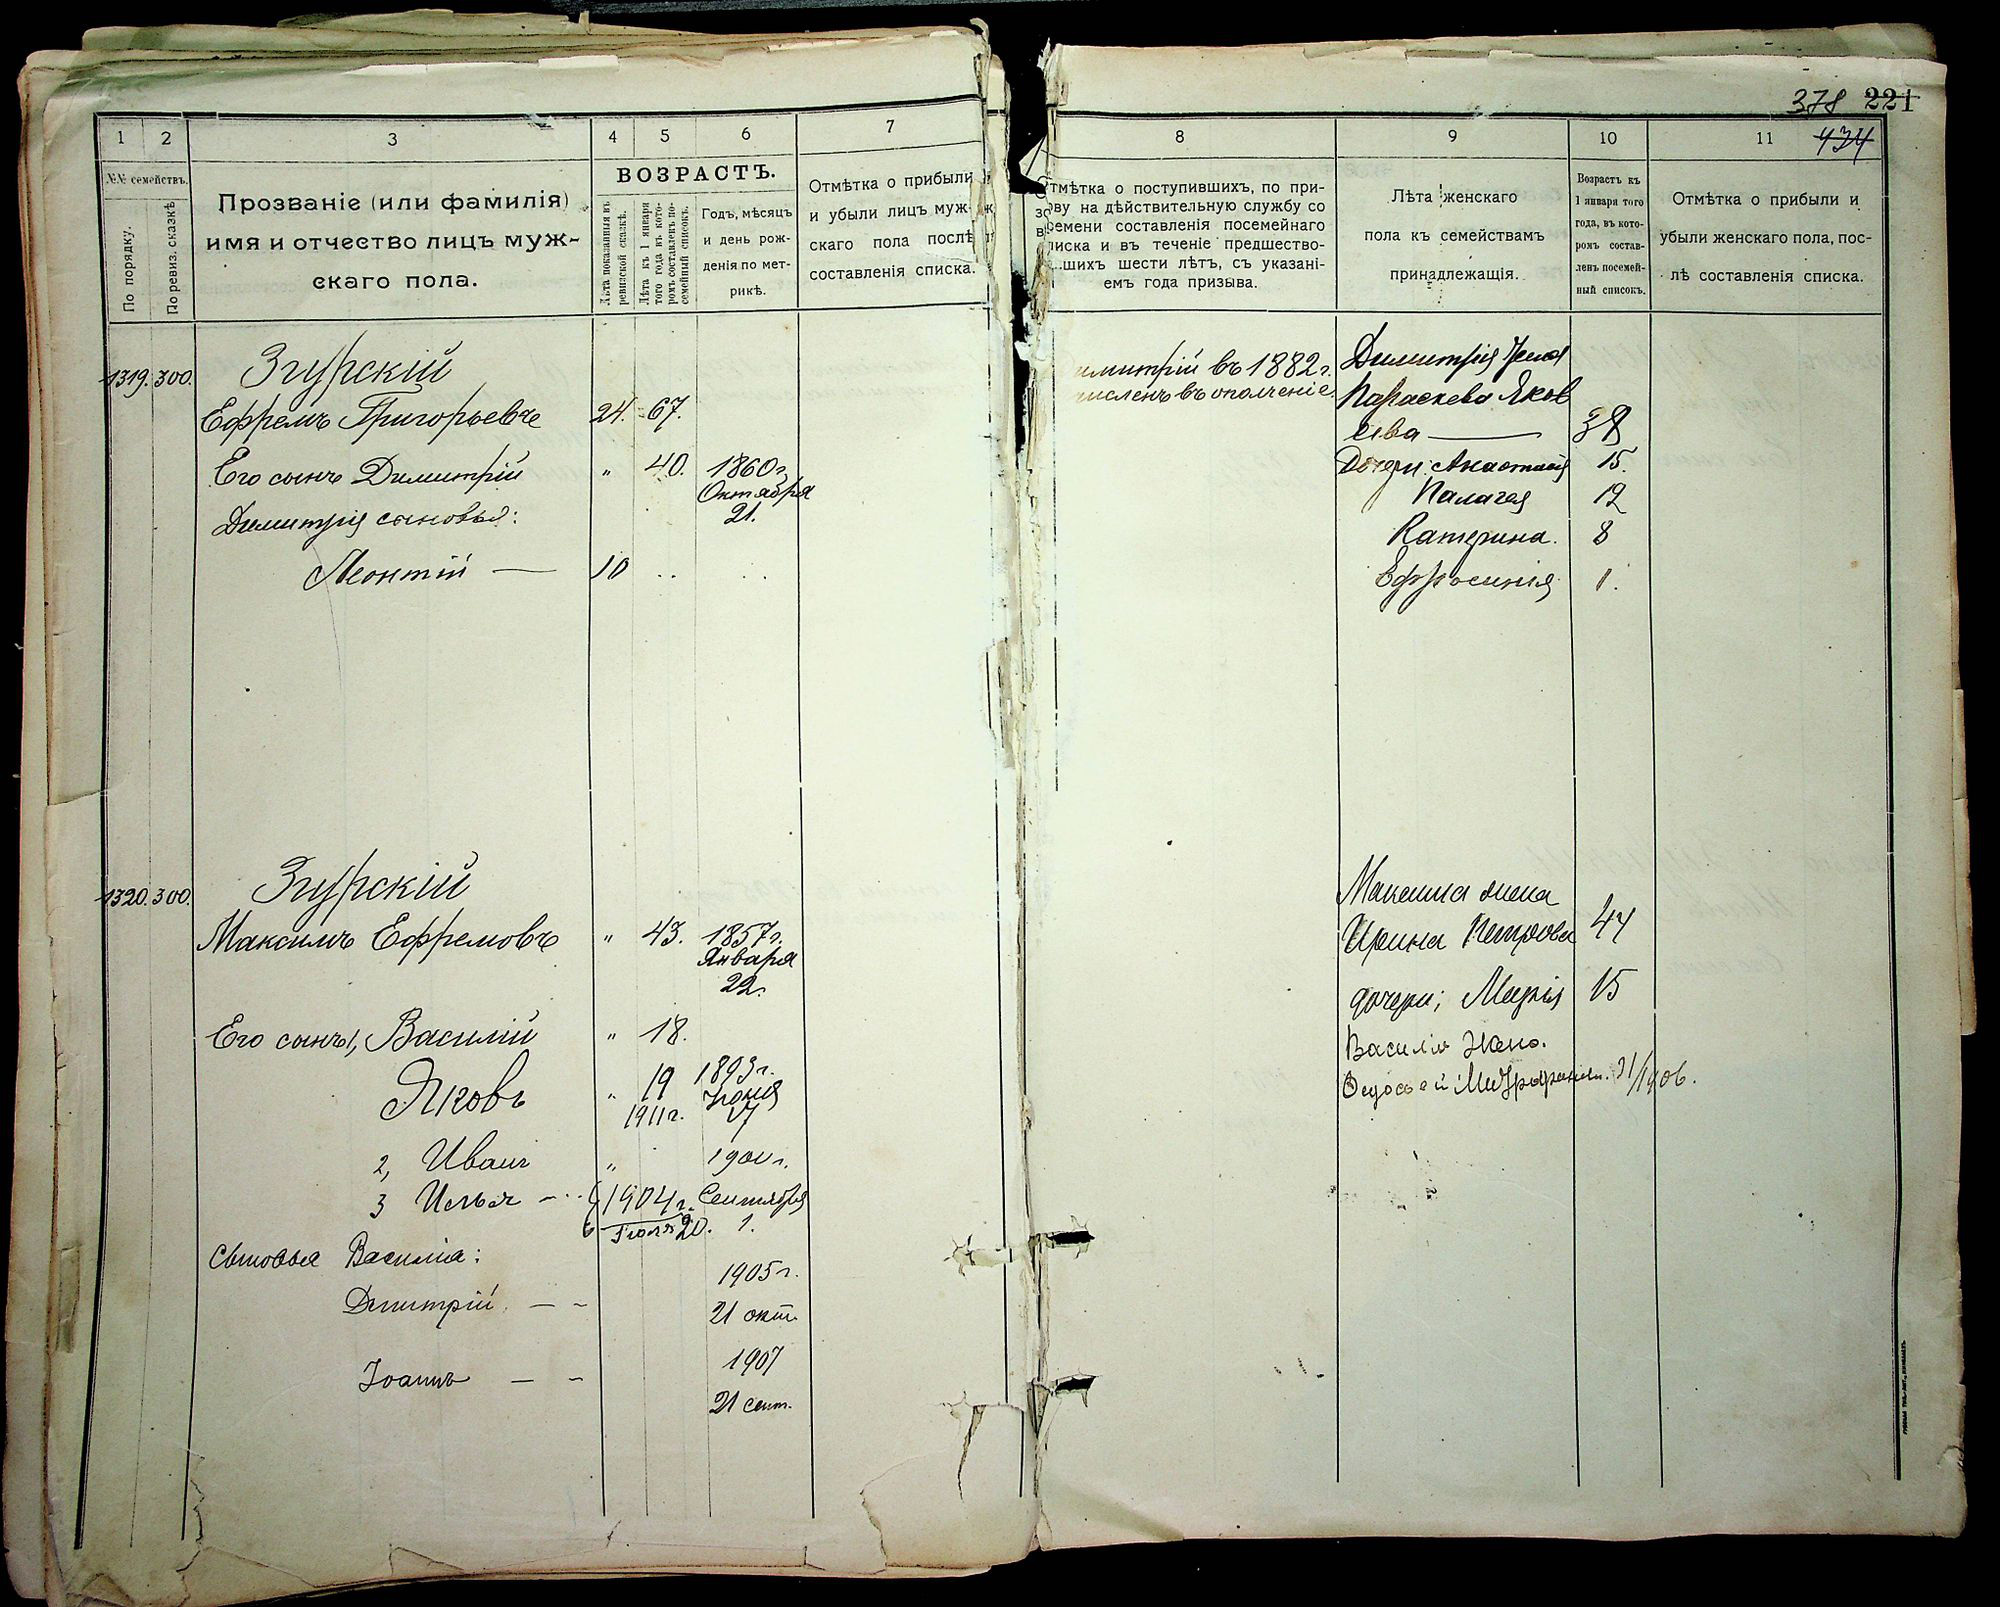 378 221
434
1 2 3 4 5 6 7
№№ семействъ.
По порядку.
По ревиз. сказкѣ
Прозваніе (или фамилія)
имя и отчество лицъ муж-
скаго пола.
ВОЗРАСТЪ.
Лѣта показанныя въ
ревизской сказкѣ.
Лѣта къ 1 января
того года къ кото-
ромъ составленъ по-
семейный списокъ.
Годъ, мѣсяцъ
и день рож-
денія по мет-
рикѣ.
Отмѣтка о прибыли
и убыли лицъ муж-
скаго пола послѣ
составленія списка.
1319. 300. Згурскій
Ефремъ Григорьевъ 24. 67.
Его сынъ Димитрій " 40. 1860 г.
Октября
21.
Димитрія сыновья:
Леонтій — 10
1320. 300. Згурскій
Максимъ Ефремовъ " 43. 1857 г.
Января
22.
Его сыны, Василій " 18.
Яковъ " 19 1893 г.
1911 г. Іюня
2, Иванъ "
3 Илья 1904 г. Сентября
Іюля 20. 1.
Сыновья Василія:
1905 г.
Дмитрій — – 21 окт.
1907
Іоаннъ — – 21 сент.
8 9 10 11
Отмѣтка о поступившихъ, по при-
зову на дѣйствительную службу со
времени составленія посемейнаго
списка и въ теченіе предшество-
шихъ шести лѣтъ, съ указані-
емъ года призыва.
Лѣта женскаго
пола къ семействамъ
принадлежащія.
Возрастъ къ
1 января того
года, въ кото-
ромъ состав-
ленъ посемей-
ный списокъ.
Отмѣтка о прибыли и
убыли женскаго пола, пос-
лѣ составленія списка.
имитрій въ 1882 г.
численъ въ ополченіе.
Димитрія жена
Параскева Яков
лева — 38
Дочери: Анастасія 15.
Палагея 12
Катерина. 8
Ефросинія 1.
Максима жена
Ирина Петрова 44
дочери; Марія 15
Василія жена.
Ѳедосья Митрофанов. 21/1906.